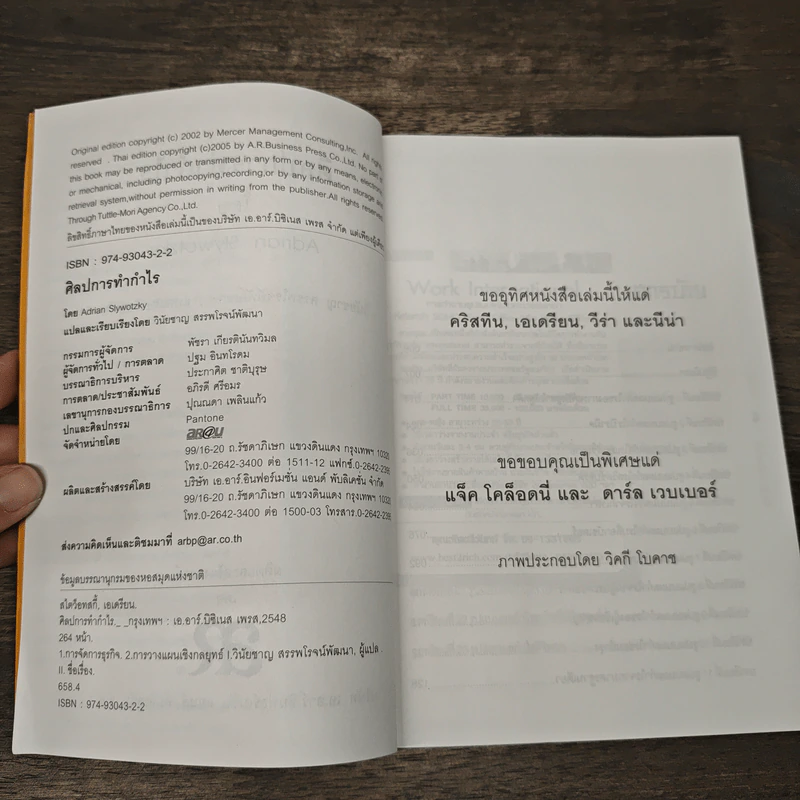 Original edition copyright (c) 2002 by Mercer Management Consulting,Inc. All rights
reserved . Thai edition copyright (c)2005 by A.R.Business Press Co.,Ltd. No part of
this book may be reproduced or transmitted in any form or by any means, electronic
or mechanical, including photocopying,recording,or by any information storage and
retrieval system,without permission in writing from the publisher.All rights reserved
Through Tuttle-Mori Agency Co.,Ltd.
ลิขสิทธิ์ภาษาไทยของหนังสือเล่มนี้เป็นของบริษัท เอ.อาร์.บิซิเนส เพรส จำกัด แต่เพียงผู้เดียว
ISBN : 974-93043-2-2
ศิลปการทำกำไร
โดย Adrian Slywotzky
แปลและเรียบเรียงโดย วินัยชาญ สรรพโรจน์พัฒนา
กรรมการผู้จัดการ พัชรา เกียรตินันทวิมล
ผู้จัดการทั่วไป / การตลาด ปฐม อินทโรดม
บรรณาธิการบริหาร ประกาศิต ชาติบุรุษ
การตลาด/ประชาสัมพันธ์ อภิรดี ศรีอมร
เลขานุการกองบรรณาธิการ ปุณณดา เพลินแก้ว
ปกและศิลปกรรม Pantone
จัดจำหน่ายโดย ar@u
99/16-20 ถ.รัชดาภิเษก แขวงดินแดง กรุงเทพฯ 10320
โทร.0-2642-3400 ต่อ 1511-12 แฟกซ์.0-2642-
ผลิตและสร้างสรรค์โดย บริษัท เอ.อาร์.อินฟอร์เมชั่น แอนด์ พับลิเคชั่น จำกัด
99/16-20 ถ.รัชดาภิเษก แขวงดินแดง กรุงเทพฯ 10320
โทร.0-2642-3400 ต่อ 1500-03 โทรสาร.0-2642-
ส่งความคิดเห็นและติชมมาที่ arbp@ar.co.th
ข้อมูลบรรณานุกรมของหอสมุดแห่งชาติ
สไตว็อทสกี้, เอเดรียน.
ศิลปการทำกำไร._ _กรุงเทพฯ : เอ.อาร์.บิซิเนส เพรส,2548
264 หน้า.
1.การจัดการธุรกิจ. 2.การวางแผนเชิงกลยุทธ์ I.วินัยชาญ สรรพโรจน์พัฒนา, ผู้แปล.
II. ชื่อเรื่อง.
658.4
ISBN : 974-93043-2-2
ขออุทิศหนังสือเล่มนี้ให้แด่
คริสทีน, เอเดรียน, วีร่า และนีน่า
ขอขอบคุณเป็นพิเศษแด่
แจ็ค โคล็อดนี่ และ ดาร์ล เวบเบอร์
ภาพประกอบโดย วิคกี โบคาซ